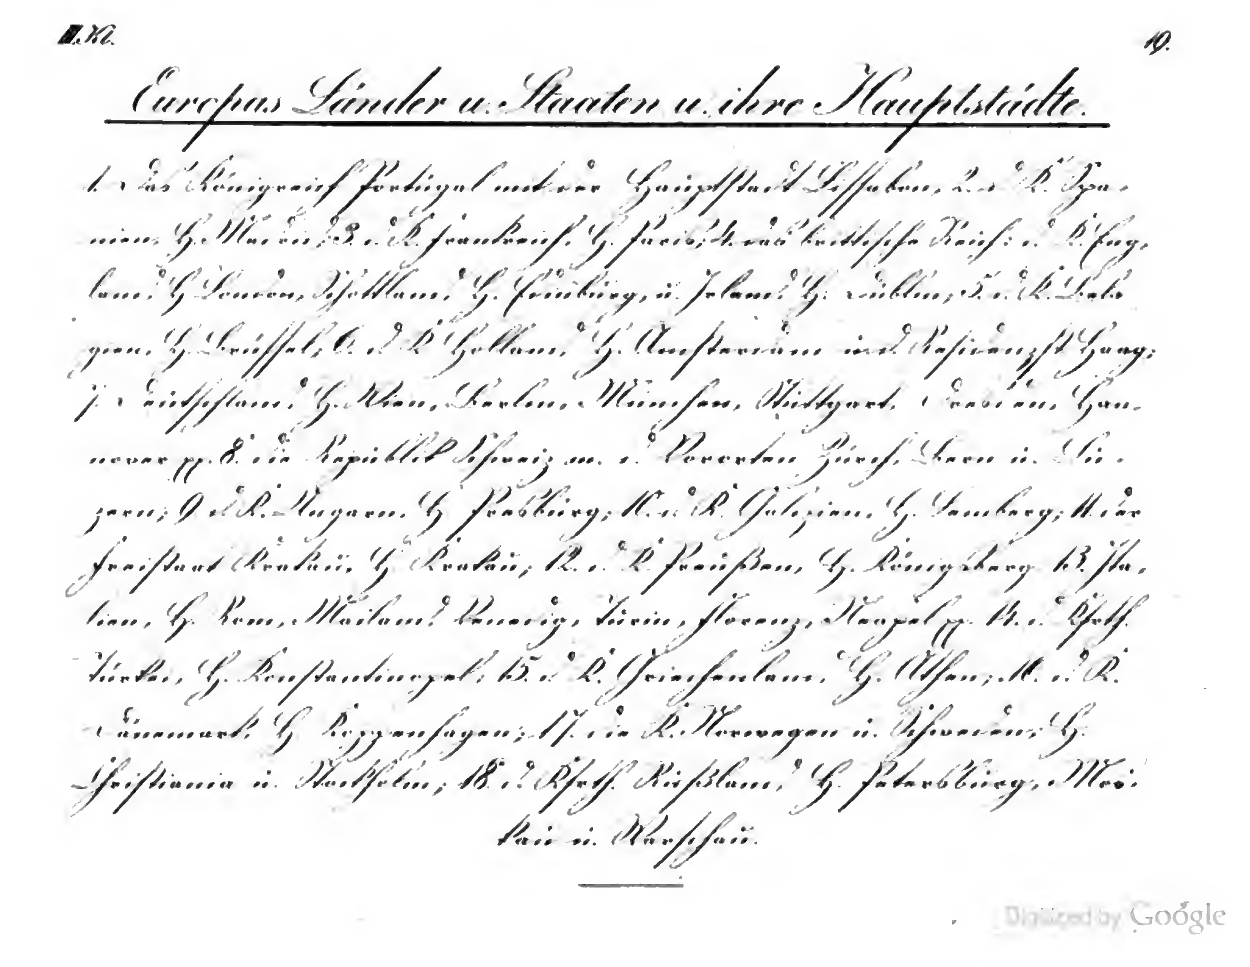 19.
Europas Länder u. Staaten u. ihre Hauptstädte.
1. Das Königreich Portugal mit der Hauptstadt Lissabon, 2. d. K. Spa-
nien, H. Madrid, 3. d. K. Frankreich, H. Paris; 4. das brittische Reich: d. K. Eng-
land, H. London, Schottland, H. Edinburg, u. Irland, H. Dublin; 5. d. K. Bel-
gien, H. Brüssel; 6. d. K. Holland, H. Amsterdam u. d. Residenzst. Haag;
7. Deutschland, H. Wien, Berlin, München, Stuttgart, Dresden, Han-
nover pp. 8. die Republik Schweiz m. d. Vororten Zürch, Bern u. Lu-
zern; 9. d. K. Ungarn, H. Presburg; 10. d. K. Galizien, H. Lemberg; 11. der
Freistaat Krakau, H. Krakau; 12. d. K. Preußen, H. Königsberg 13. Ita-
lien, H. Rom, Mailand, Venedig, Turin, Florenz, Neapel pp. 14. d. Ksrth.
Türkei, H. Konstantinopel; 15. d. K. Griechenland, H. Athen; 16. d. K.
Dänemark, H. Koppenhagen; 17. die K. Norwegen u. Schweden, H.
Christiania u. Stockholm; 18. d. Ksrth. Rußland, H. Petersburg, Mos-
kau u. Warschau.
Digitized by Google